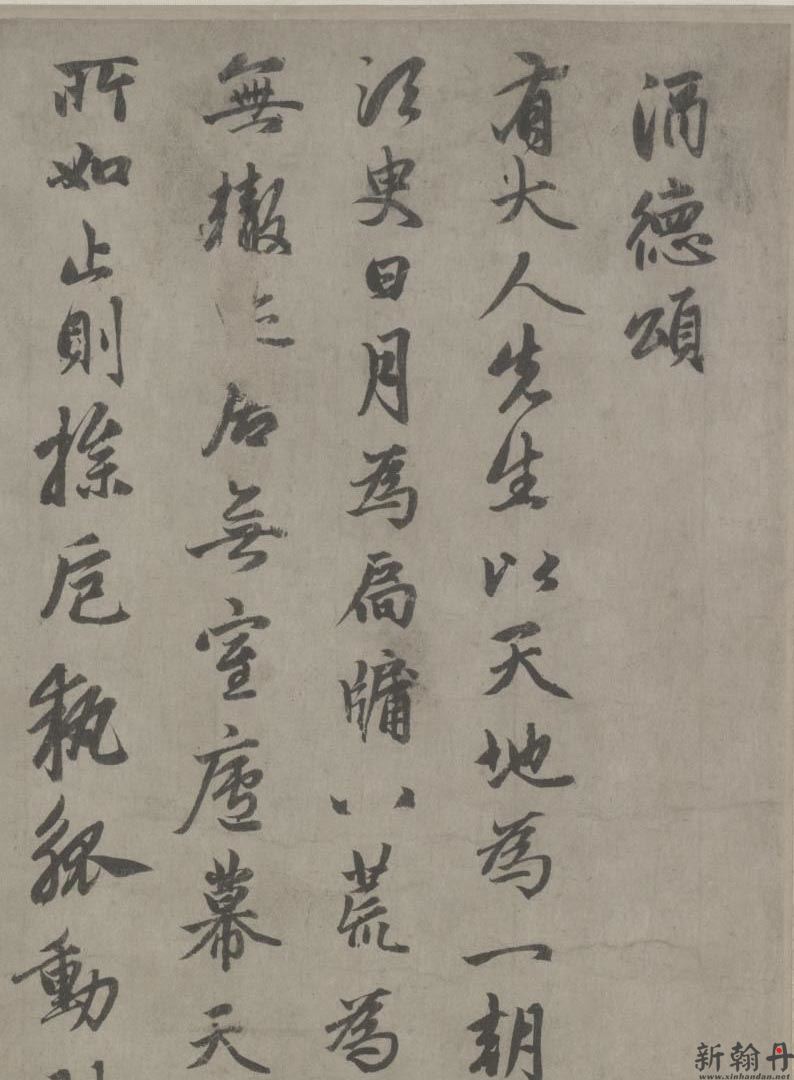 酒德頌
有大人先生以天地為一朝
須臾日月為扃牖八荒為
無轍居無室廬幕天
所如止則操卮執觚動
新翰丹
www.xinhandan.net